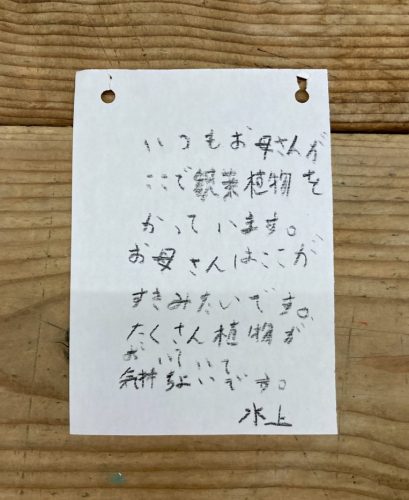 いつもお母さんが
ここで観葉植物を
かっています。
お母さんはここが
すきみたいです。
たくさん植物が
おいていて
気持ちよいです。
水上